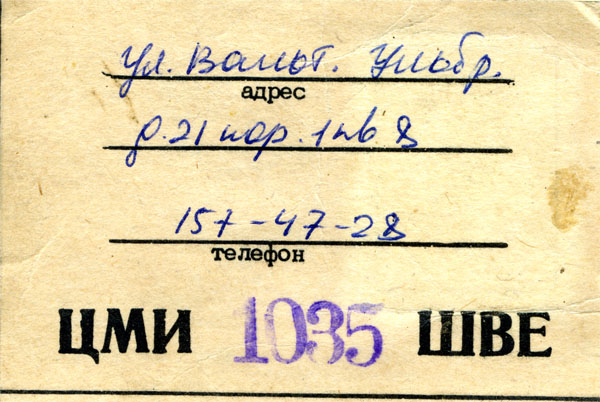 ул. Вальт. Ульбр.
адрес
д. 21 кор. 1 кв 8
157-47-28
телефон
ЦМИ 1035 ШВЕ